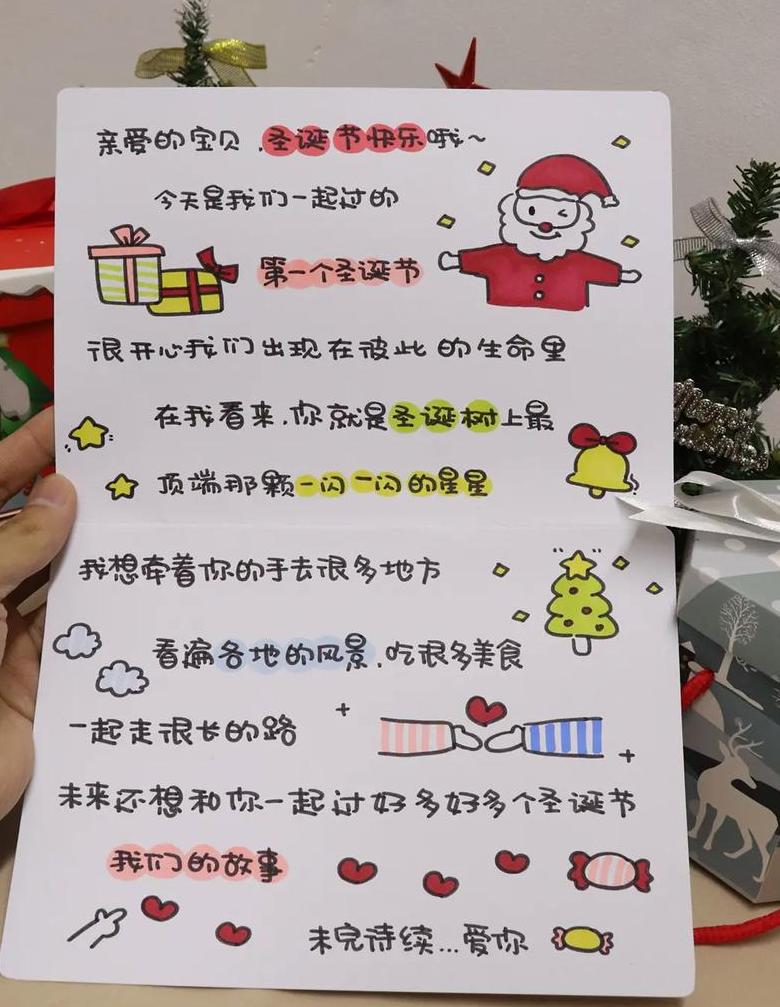 亲爱的宝贝.圣诞节快乐哦~
今天是我们一起过的
第一个圣诞节
很开心我们出现在彼此的生命里
在我看来.你就是圣诞树上最
顶端那颗一闪一闪的星星
我想牵着你的手去很多地方
看遍各地的风景.吃很多美食
一起走很长的路
未来还想和你一起过好多好多个圣诞节
我们的故事
未完待续...爱你